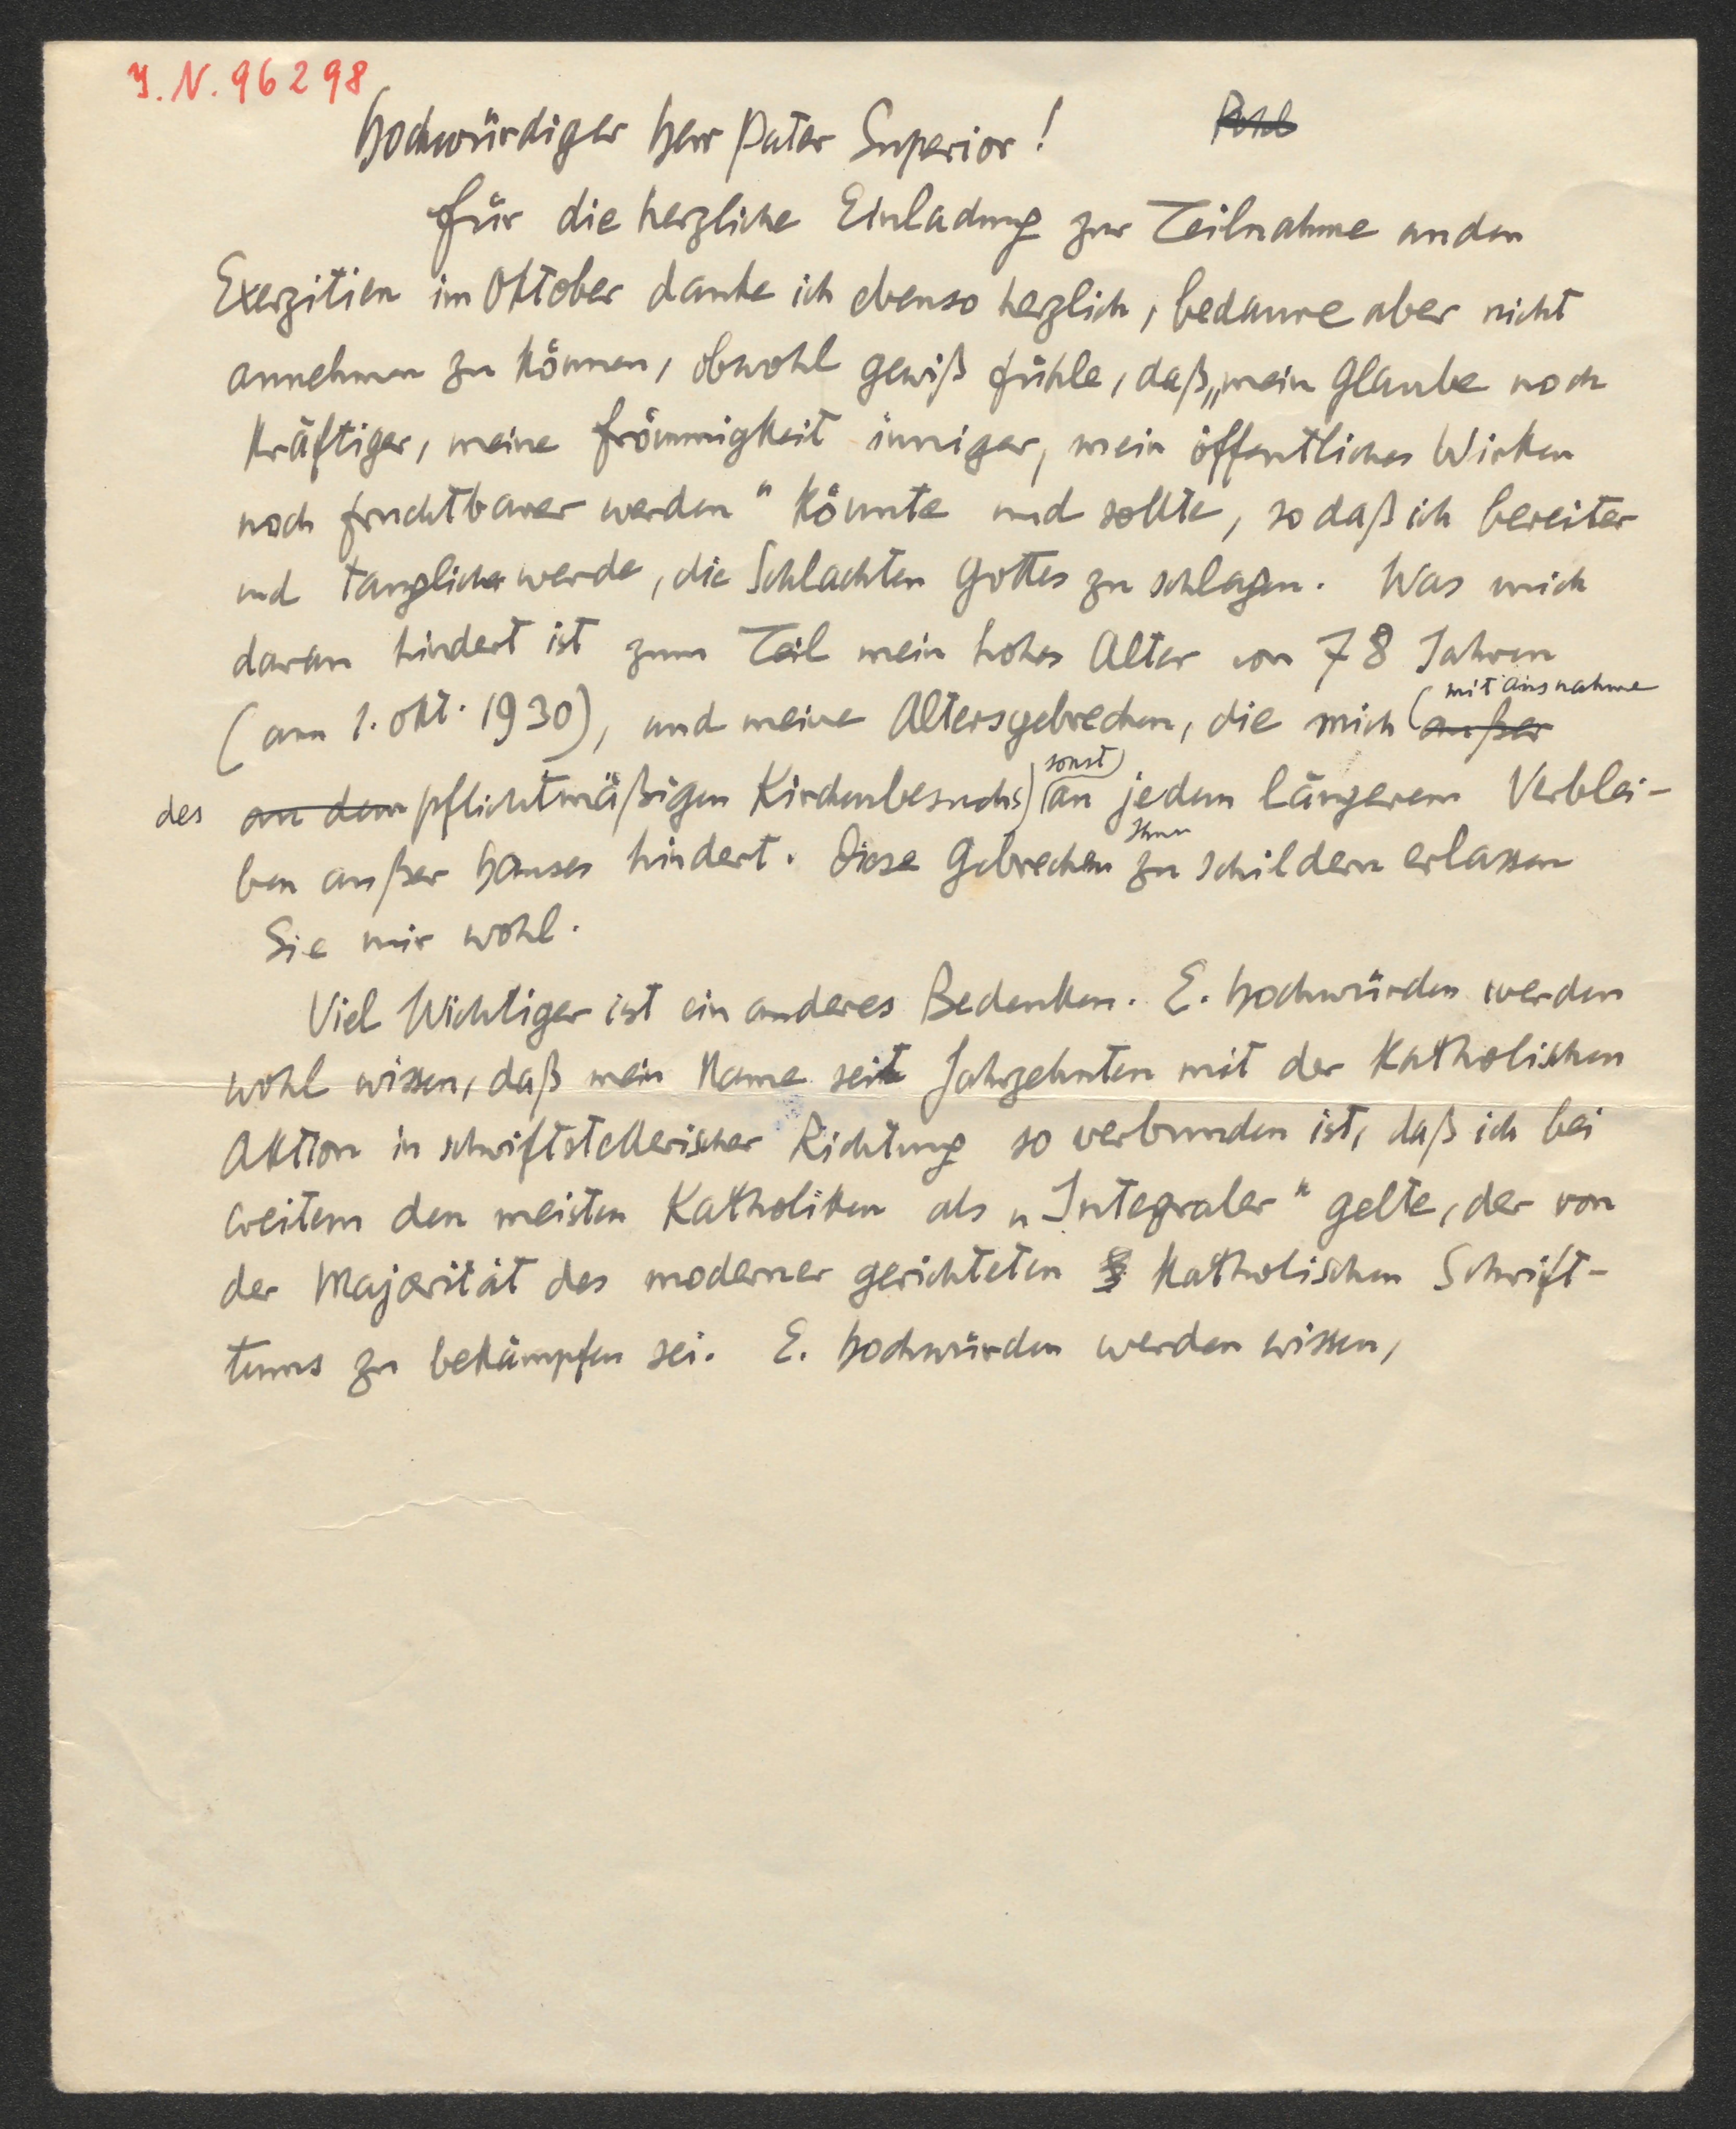 I.N. 96298
Hochwürdiger Herr Pater Superior!
Für die herzliche Einladung zur Teilnahme an den
Exerzitien im Oktober danke ich ebenso herzlich, bedaure aber nicht
annehmen zu können, obwohl gewiß fühle, daß „mein Glaube noch
kräftiger, meine Frömmigkeit inniger, mein öffentliches Wirken
noch fruchtbarer werden" könnte und sollte, so daß ich bereiter
und tauglicher werde, die Schlachten Gottes zu schlagen. Was mich
daran hindert ist zum Teil mein hohes Alter von 78 Jahren
(am 1. Okt. 1930), und meine Altersgebrechen, die mich (außer mit Ausnahme
des an dem pflichtmäßigen Kirchenbesuchs) (sonst) an jedem längerem Verblei-
ben außer Hauses hindert. Diese Gebrechen Ihnen zu schildern erlassen
Sie mir wohl.
Viel Wichtiger ist ein anderes Bedenken. E. Hochwürden werden
wohl wissen, daß mein Name seit Jahrzehnten mit der Katholischen
Aktion in schriftstellerischer Richtung so verbunden ist, daß ich bei
weitem den meisten Katholiken als „Integraler" gelte, der von
der Majorität des moderner gerichteten Katholischen Schrift-
tums zu bekämpfen sei. E. Hochwürden werden wissen,